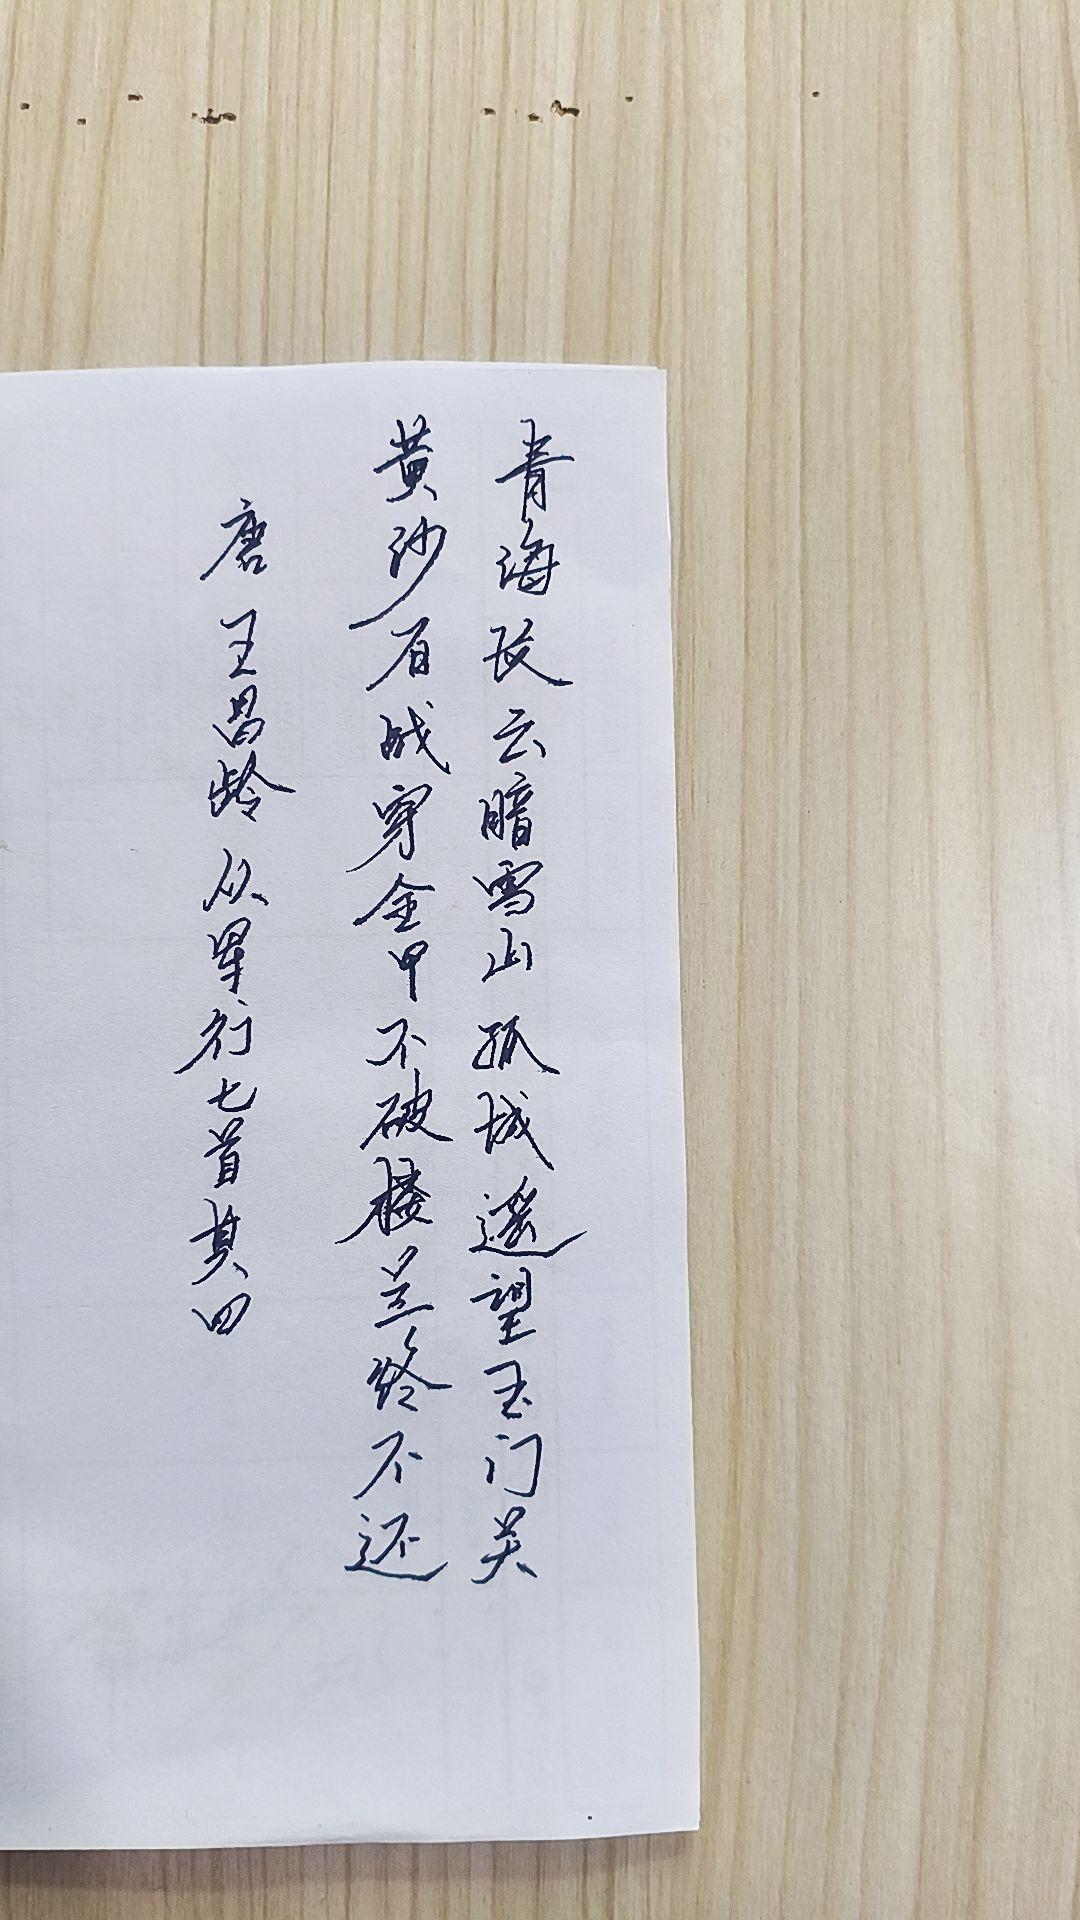 青海长云暗雪山孤城遥望玉门关
黄沙百战穿金甲不破楼兰终不还
唐王昌龄从军行七首其四